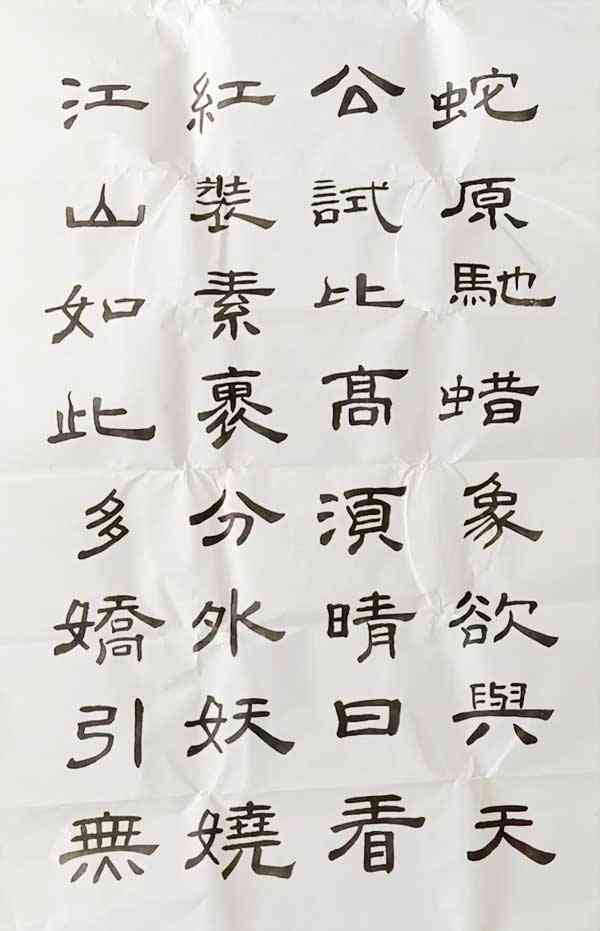 蛇原馳蜡象欲與天
公試比高須晴日看
紅裝素裹分外妖嬈
江山如此多嬌引無